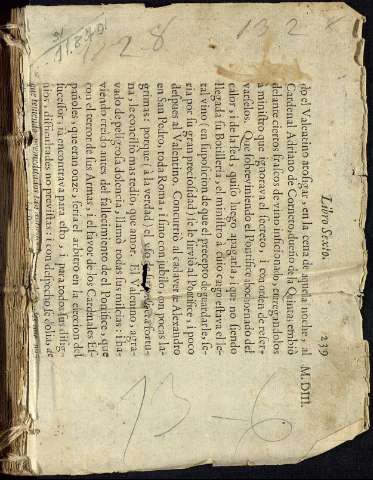 Libro Sexto. 239
M. DIII.
do el Valentino atosigar, en la cena de aquella noche, al
Cardenal Adriano de Corneto, dueño de la Quinta, embiò
delante ciertos frascos de vino inficionado, entregandolos
a ministro que ignorava el secreto, i con orden de reser-
varselos. Que sobreviniendo el Pontifice abochornado del
calor, i de la sed, quiso luego apagarla, que no siendo
llegada su Botilleria, el ministro à cuio cargo estava el fe-
tal vino (en suposicion de que el precepto de guardarle, se-
ria por su gran preciosidad) se le sirviò al Pontifice, i poco
despues al Valentino. Concurriò al cadaver de Alexandro
en San Pedro, toda Roma, i sino con jubilo, con pocas la-
grimas: porque (à la verdad) el uso
na, le concilio mas tedio, que amor. El Valentino, agra-
vado de peligrosa dolencia, llamò todas sus milicias: i ha-
viendo creido antes del fallecimiento de el Pontifice, que
con el terror de sus Armas, i el favor de los Cardenales Es-
pañoles, que eran onze, seria el arbitro en la eleccion del
sucessor: ia encontrava para esto, i para todos sus desig-
nios, dificultades no previstas: i con despecho se dolia, de
que teniendo
28
132